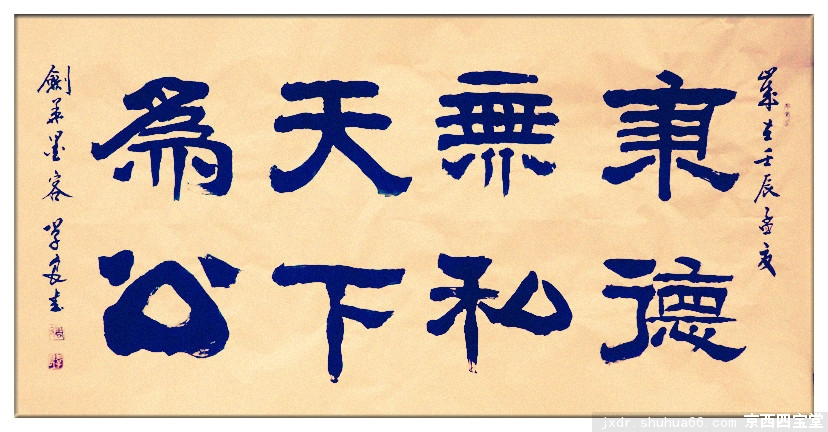 歲在壬辰孟夏
秉德
無私
天下
為公
墨客
jxdr.shuhua66.com 京西四宝堂